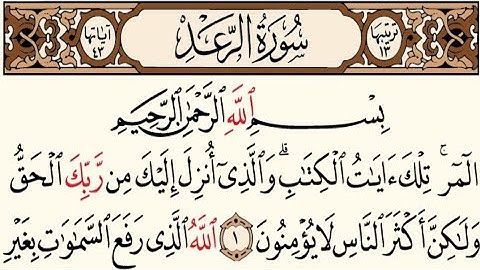 ترتيبها ١٣ سُورَةُ الرَّعْدِ آياتها ٤٣
بِسْمِ اللَّهِ الرَّحْمَٰنِ الرَّحِيمِ
الٓمٓرۚ تِلْكَ ءَايَٰتُ ٱلْكِتَٰبِۗ وَٱلَّذِىٓ أُنزِلَ إِلَيْكَ مِن رَّبِّكَ ٱلْحَقُّ
وَلَٰكِنَّ أَكْثَرَ ٱلنَّاسِ لَا يُؤْمِنُونَ ١ ٱللَّهُ ٱلَّذِى رَفَعَ ٱلسَّمَٰوَٰتِ بِغَيْرِ